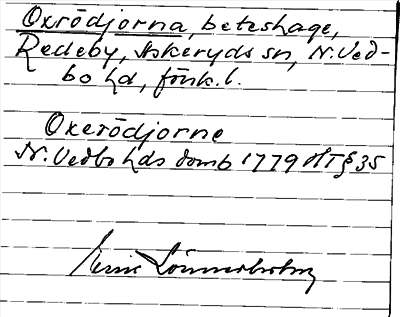 Oxrödjorna, beteshage,
Redeby, Askeryds sn, N. Ved-
bo hd, förk. l.
Oxerödjorne
N. Vedbo hds domb 1779 HT § 35